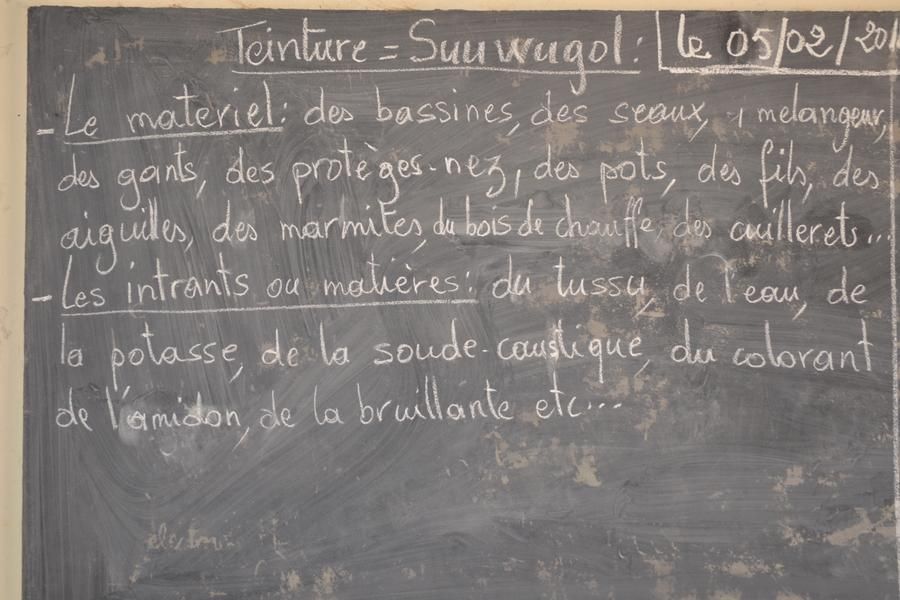 Teinture = Suuwugol : le 05/02/201
- Le materiel : des bassines, des seaux, melangeur,
des gants, des protèges-nez, des pots, des fils, des
aiguilles, des marmites, du bois de chauffe, des cuillerets...
- Les intrants ou matières : du tussu, de l'eau, de
la potasse, de la soude-caustique, du colorant
de l'amidon, de la bruillante etc...